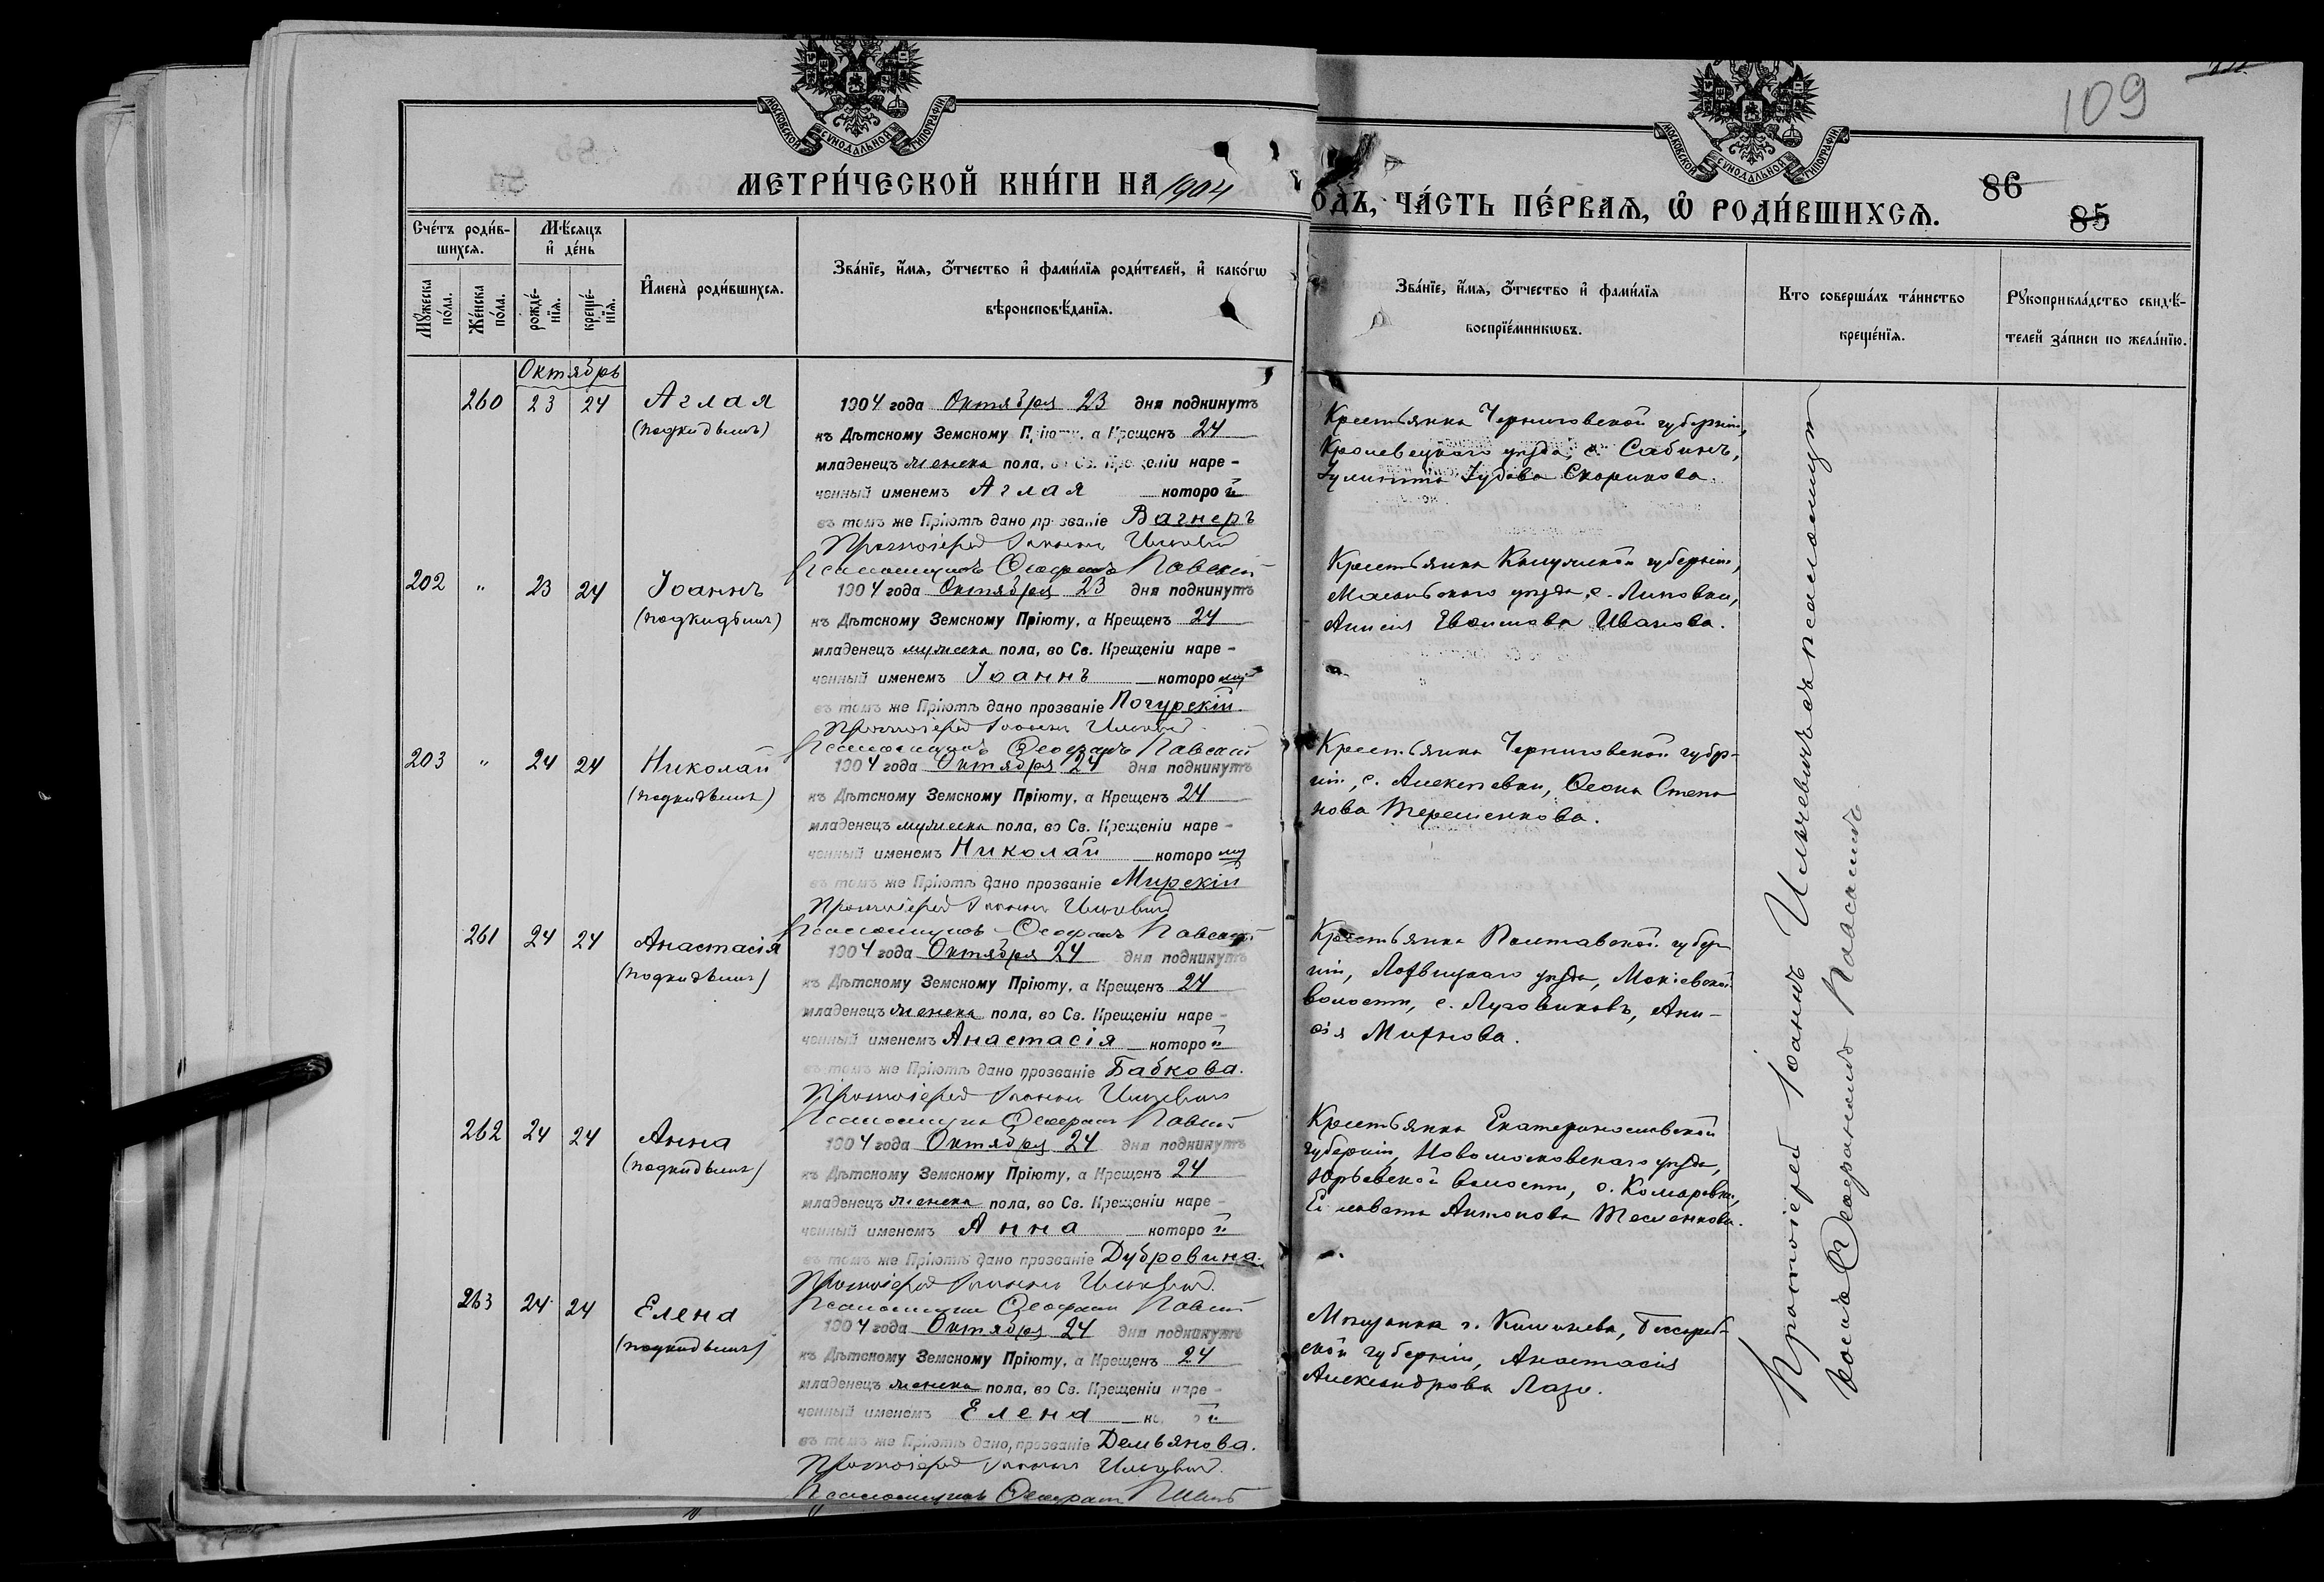 109
МОСКОВСКОЙ СУНОДАЛЬНОЙ ТИПОГРАФІИ
МОСКОВСКОЙ СУНОДАЛЬНОЙ ТИПОГРАФІИ
МЕТРИ́ЧЕСКОЙ КНИ́ГИ НА 1904
ОДЪ, ЧА́СТЬ ПЕ́РВАѦ, Ѡ РОДИ́ВШИХСѦ.
86
85
Сче́тъ роди́в-
шихсѧ.
Мѣ́сѧцъ
и҆ де́нь
Мꙋ́жеска
по́ла.
Же́нска
по́ла.
рожде́-
нїѧ.
креще́-
нїѧ.
И҆мена̀ роди́вшихсѧ.
Зва́нїе, и҆́мѧ, ѻ҆́тчество и҆ фами́лїѧ роди́телей, и҆ како́гѡ
вѣроисповѣ́данїѧ.
Зва́нїе, и҆́мѧ, ѻ҆́тчество и҆ фами́лїѧ
воспрїе́мникѡвъ.
Кто соверша́лъ та́инство
креще́нїѧ.
Рꙋкоприкла́дство свидѣ́-
телей за́писи по жела́нїю.
Октябрь
260 23 24 Аглая
(подкидышъ)
1904 года Октября 23 дня подкинутъ
къ Дѣтскому Земскому Пріюту, а Крещенъ 24
младенецъ женска пола, во Св. Крещеніи наре-
ченный именемъ Аглая которой
въ томъ же Пріютѣ дано прозваніе Вагнеръ
Протоіерей Іоаннъ Ильчевичъ
Псаломщикъ Ѳеофанъ Павскій
Крестьянка Черниговской губерніи,
Кролевецкаго уѣзда, с. Сабинъ,
Іулитта Іудова Скорикова.
202 " 23 24 Іоаннъ
(подкидышъ)
1904 года Октября 23 дня подкинутъ
къ Дѣтскому Земскому Пріюту, а Крещенъ 24
младенецъ мужеска пола, во Св. Крещеніи наре-
ченный именемъ Іоаннъ которому
въ томъ же Пріютѣ дано прозваніе Погурскій.
Протоіерей Іоаннъ Ильчевичъ
Псаломщикъ Ѳеофанъ Павскій
Крестьянка Калужской губерніи,
уѣзда, с. Липовки,
Евфимова Иванова.
203 " 24 24 Николай
(подкидышъ)
1904 года Октября 24 дня подкинутъ
къ Дѣтскому Земскому Пріюту, а Крещенъ 24
младенецъ мужеска пола, во Св. Крещеніи наре-
ченный именемъ Николай которому
въ томъ же Пріютѣ дано прозваніе Мирскій
Протоіерей Іоаннъ Ильчевичъ
Псаломщикъ Ѳеофанъ Павскій
Крестьянка Черниговской губер-
ніи, с. Алексѣевки, Ѳеона Степа
нова Терещенкова.
261 24 24 Анастасія
(подкидышъ)
1904 года Октября 24 дня подкинутъ
къ Дѣтскому Земскому Пріюту, а Крещенъ 24
младенецъ женска пола, во Св. Крещеніи наре-
ченный именемъ Анастасія которой
въ томъ же Пріютѣ дано прозваніе Бабкова.
Протоіерей Іоаннъ Ильчевичъ
Псаломщикъ Ѳеофанъ Павскій
Крестьянка Полтавской губер
ніи, Лохвицкаго уѣзда, Мокіевской
волости, с. Луговиковъ, Ани-
сія Михнова.
262 24 24 Анна
(подкидышъ)
1904 года Октября 24 дня подкинутъ
къ Дѣтскому Земскому Пріюту, а Крещенъ 24
младенецъ женска пола, во Св. Крещеніи наре-
ченный именемъ Анна которой
въ томъ же Пріютѣ дано прозваніе Дубровина.
Протоіерей Іоаннъ Ильчевичъ.
Псаломщикъ Ѳеофанъ Павскій
Крестьянка Екатеринославской
губерніи, Новомосковскаго уѣзда,
Юрьевской волости, с. Комаровки,
Елисавета Антонова Тесленкова.
263 24 24 Елена
(подкидышъ)
1904 года Октября 24 дня подкинутъ
къ Дѣтскому Земскому Пріюту, а Крещенъ 24
младенецъ женска пола, во Св. Крещеніи наре-
ченный именемъ Елена которой
въ томъ же Пріютѣ дано прозваніе Демьянова.
Протоіерей Іоаннъ Ильчевичъ.
Псаломщикъ Ѳеофанъ Павскій
Мѣщанка г. Кишинева, Бессараб-
ской губерніи, Анастасія
Александрова Лазо.
Протоіерей Іоаннъ Ильчевичъ съ псаломщи
комъ Ѳеофаномъ Павскимъ.